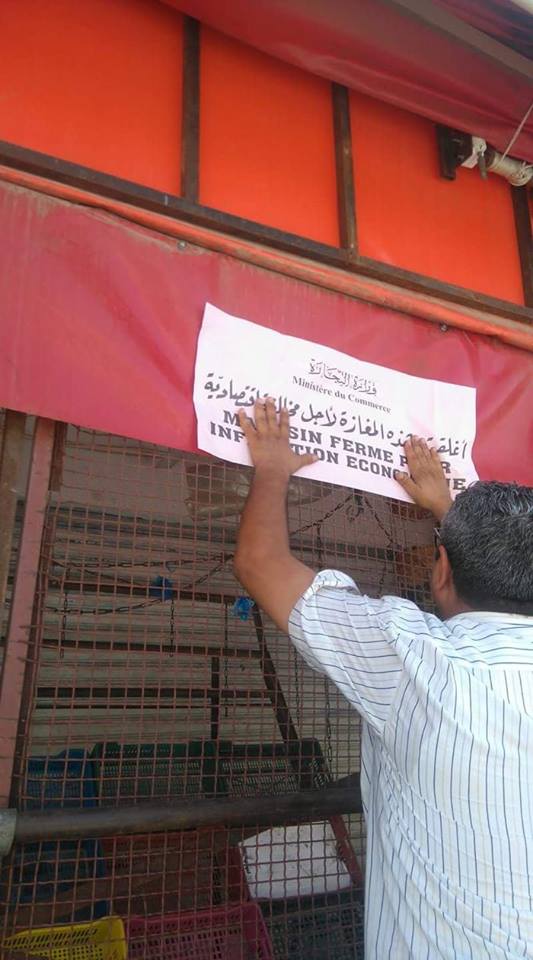 وزارة التجارة
Ministère du Commerce
أغلقت هذه المغازة لأجل مخالفة اقتصاديّة
FERME
INFR TION ECONO